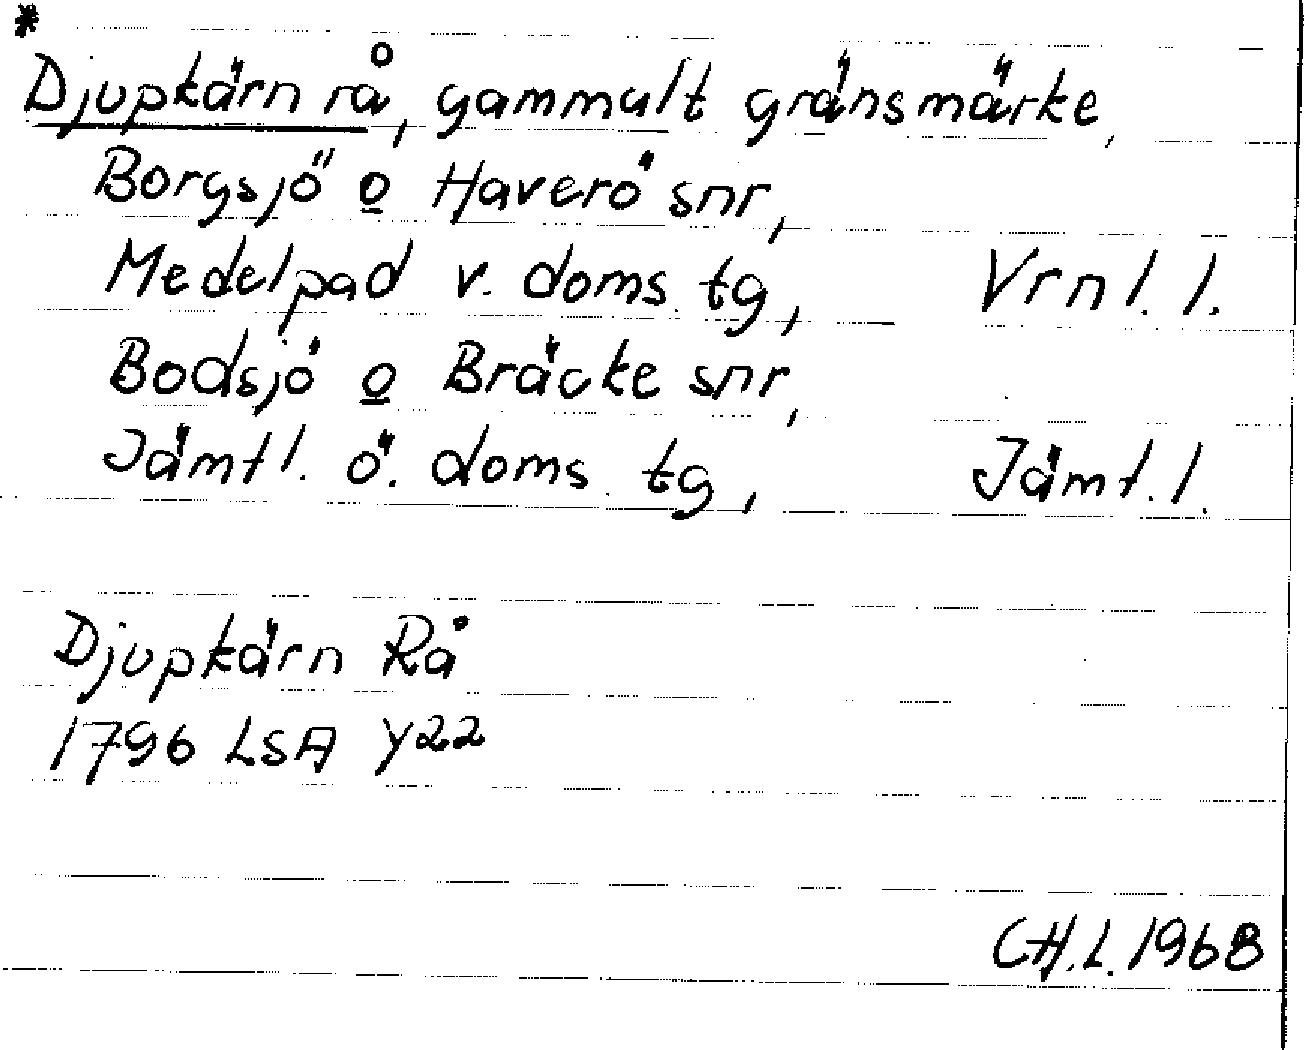 *
Djupkärn rå, gammalt gränsmärke,
Borgsjö o Haverö snr,
Medelpad v. doms. tg, Vrnl. l.
Bodsjö o Bräcke snr,
Jämtl. ö. doms. tg, Jämt. l.
Djupkärn Rå
1796 LSA Y22
CH.L. 1968